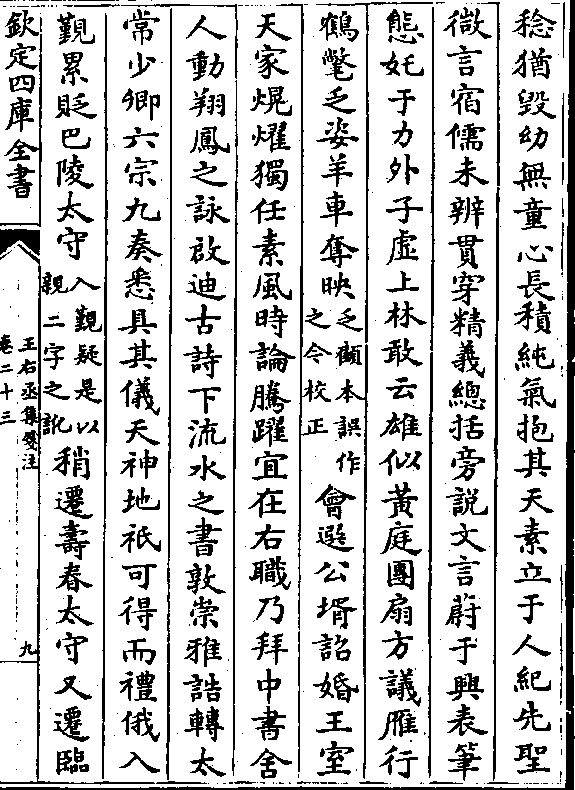 稔猶毀幼無童心長積純氣抱其天素立于人紀先聖
微言宿儒未辨貫穿精義總括旁説文言蔚于興表筆
態妖于力外子虛上林敢云雄似黃庭團扇方議雁行
鶴氅乏姿羊車奪映乏顧本誤作
之今校正會選公壻詔婚王室
天家焜耀獨任素風時論騰躍宜在右職乃拜中書舍
人動翔鳳之詠啟迪古詩下流水之書敦崇雅誥轉太
常少卿六宗九奏悉具其儀天神地祇可得而禮俄入
覲累貶巴陵太守入覲疑是以
親二字之訛稍遷壽春太守又遷臨
欽定四庫全書
王右丞集箋注
卷二十三
九